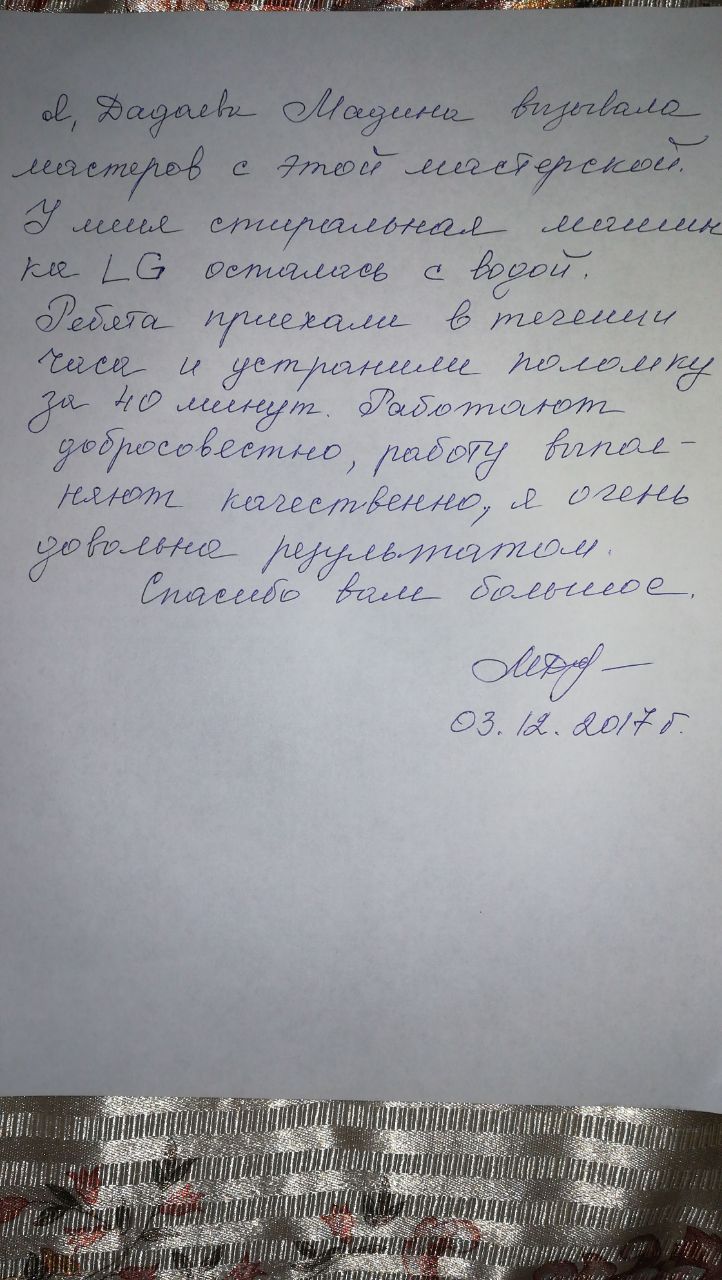 Я, Дадаева Мадина вызывала
мастеров с этой мастерской.
У меня стиральная машин
ка LG осталась с водой.
Ребята приехали в течении
часа и устранили поломку
за 40 минут. Работают
добросовестно, работу выпол-
няют качественно, я очень
довольна результатом.
Спасибо вам большое.
03.12.2017 г.